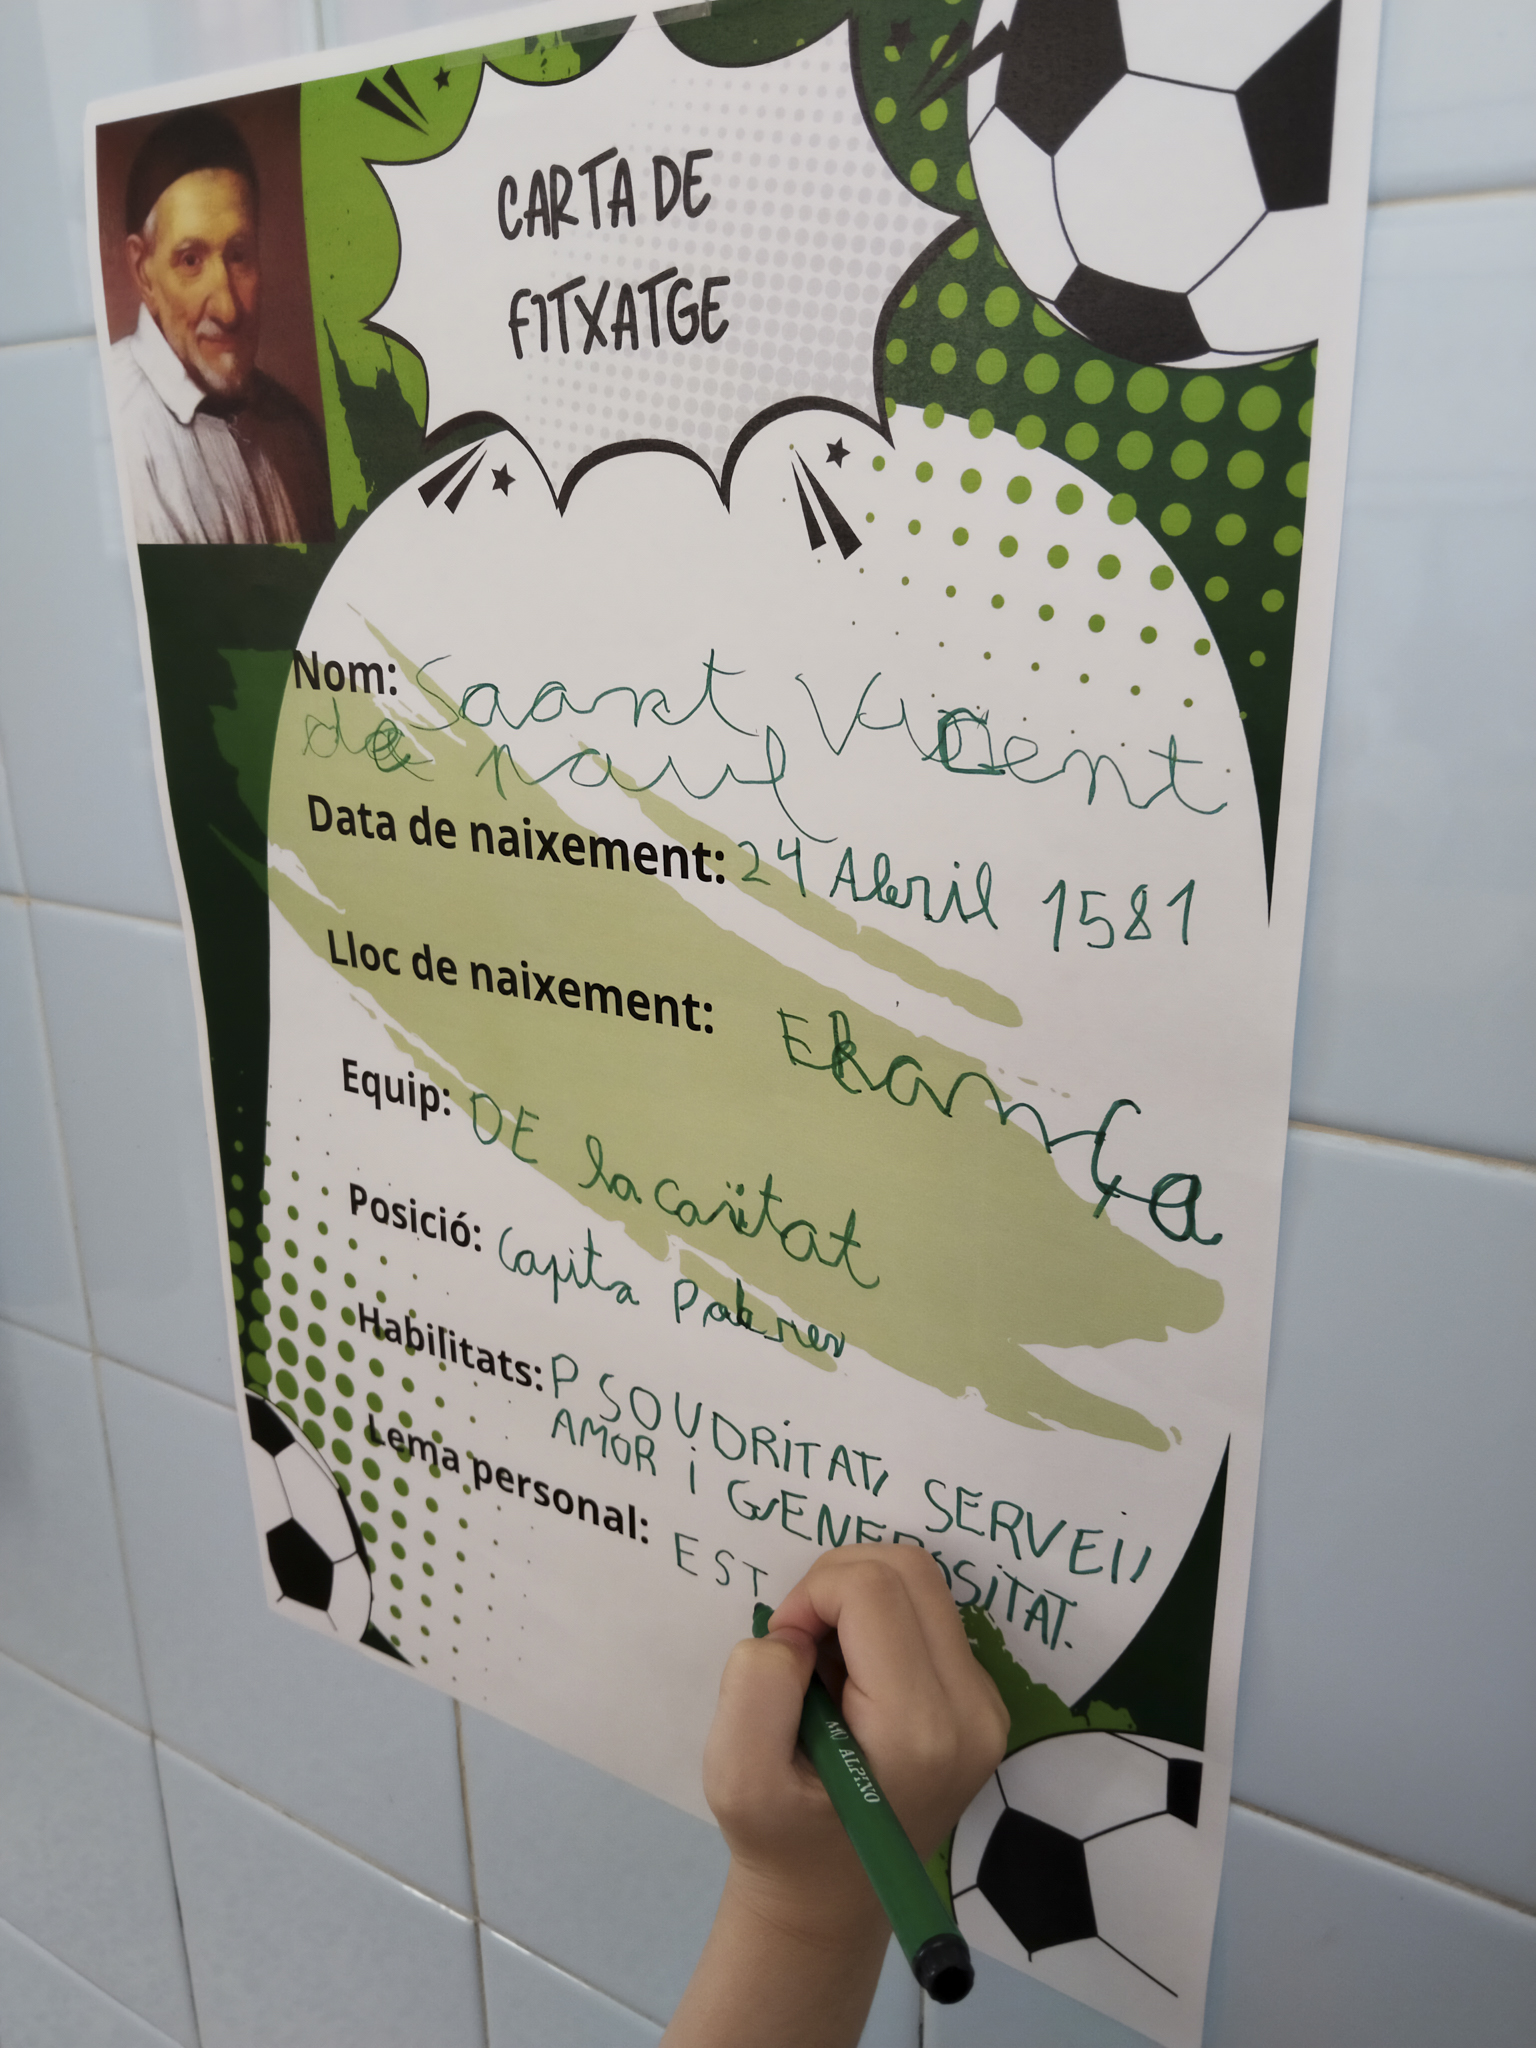 CARTA DE
FITXATGE
Nom: Saant Vicent
de paul
Data de naixement: 24 Abril 1581
Lloc de naixement: França
Equip: DE la caritat
Posició: Capita Pobres
Habilitats: P SOUDRITAT, SERVEI,
AMOR i GENEROSITAT.
Lema personal: EST
ALPINO